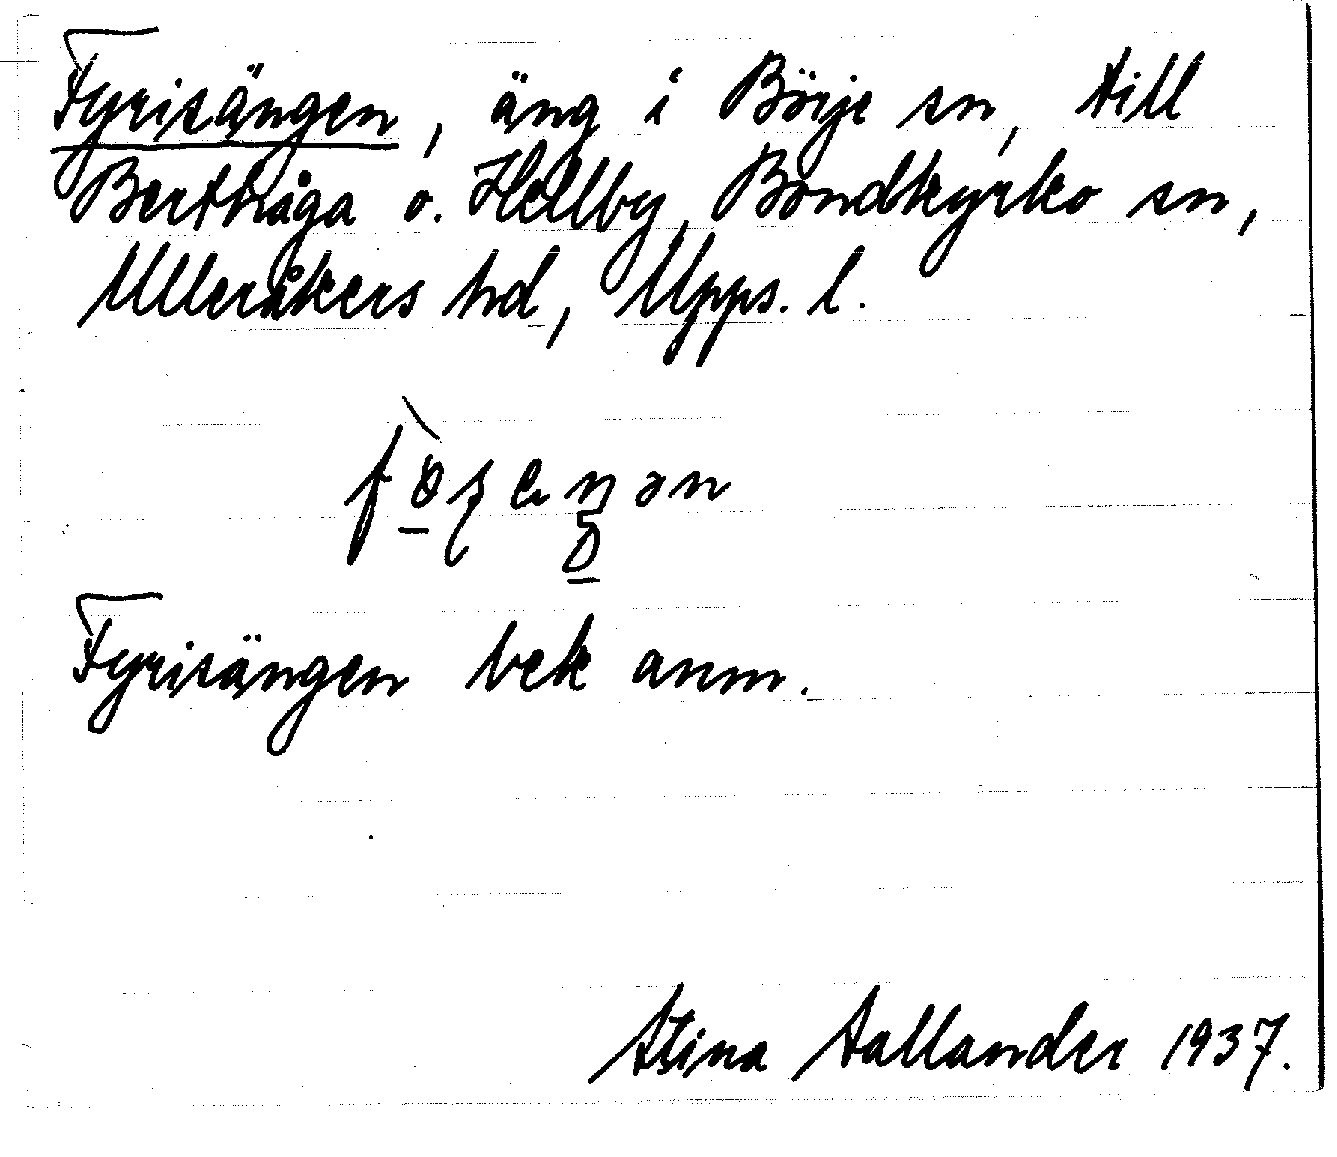 Fyrisängen, äng i Börje sn, till
Berthåga o. Hällby, Bondkyrko sn,
Ulleråkers hd, Upps. l.
Fyrisängen bek anm.
Stina Tallander 1937.